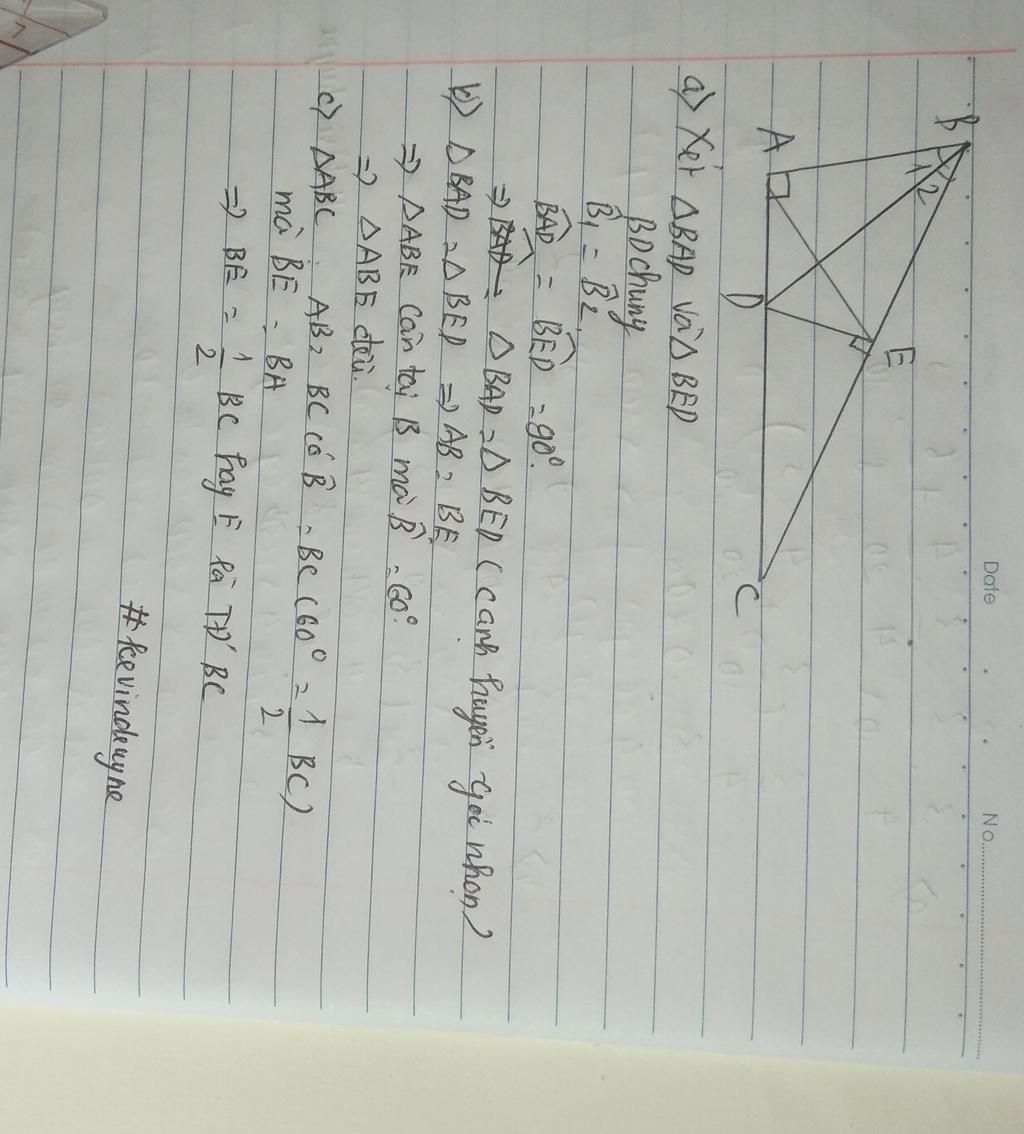 Date
No.
B
1 2
E
A
D
C
a) Xét ΔBAD và ΔBED
BD chung
B̂1 = B̂2
BAD^ = BED^ = 90°.
⇒ ΔBAD = ΔBED (cạnh huyền - góc nhọn)
b) ΔBAD = ΔBED ⇒ AB = BE
⇒ ΔABE cân tại B mà B̂ = 60°.
⇒ ΔABE đều.
c) ΔABC . AB = BC có B̂ = BC (60° = 1/2 BC)
mà BE = BA
⇒ BE = 1/2 BC hay E là TĐ BC
#kevindwyne